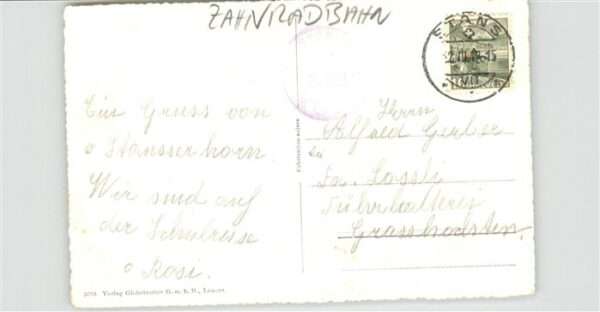 ZAHNRADBAHN
STANS
Ein Gruss von
o Stansserhorn.
Wir sind auf
der Schulreise
o Rosi.
Herrn
Alfred Gerber
Fa. Hossli
Fuhrhalterei
Grasshodsten.
Verlag Globetrotter G.m.b.H., Luzern